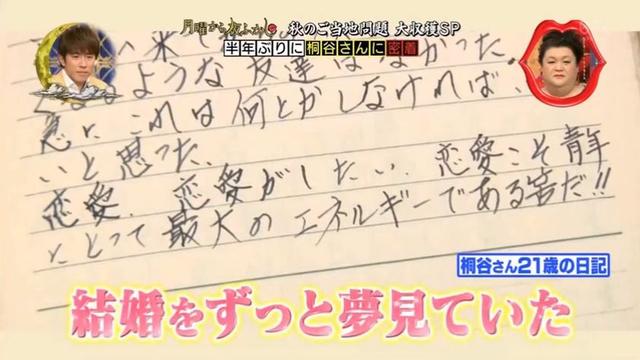 月曜から夜ふかし
秋のご当地問題 大収穫SP
半年ぶりに桐谷さんに密着
ような友達はなかった。
急に これは何とかしなければ、
いと思った。
恋愛、恋愛がしたい、恋愛こそ青年
にとって最大のエネルギーである筈だ!!
桐谷さん21歳の日記
結婚をずっと夢見ていた